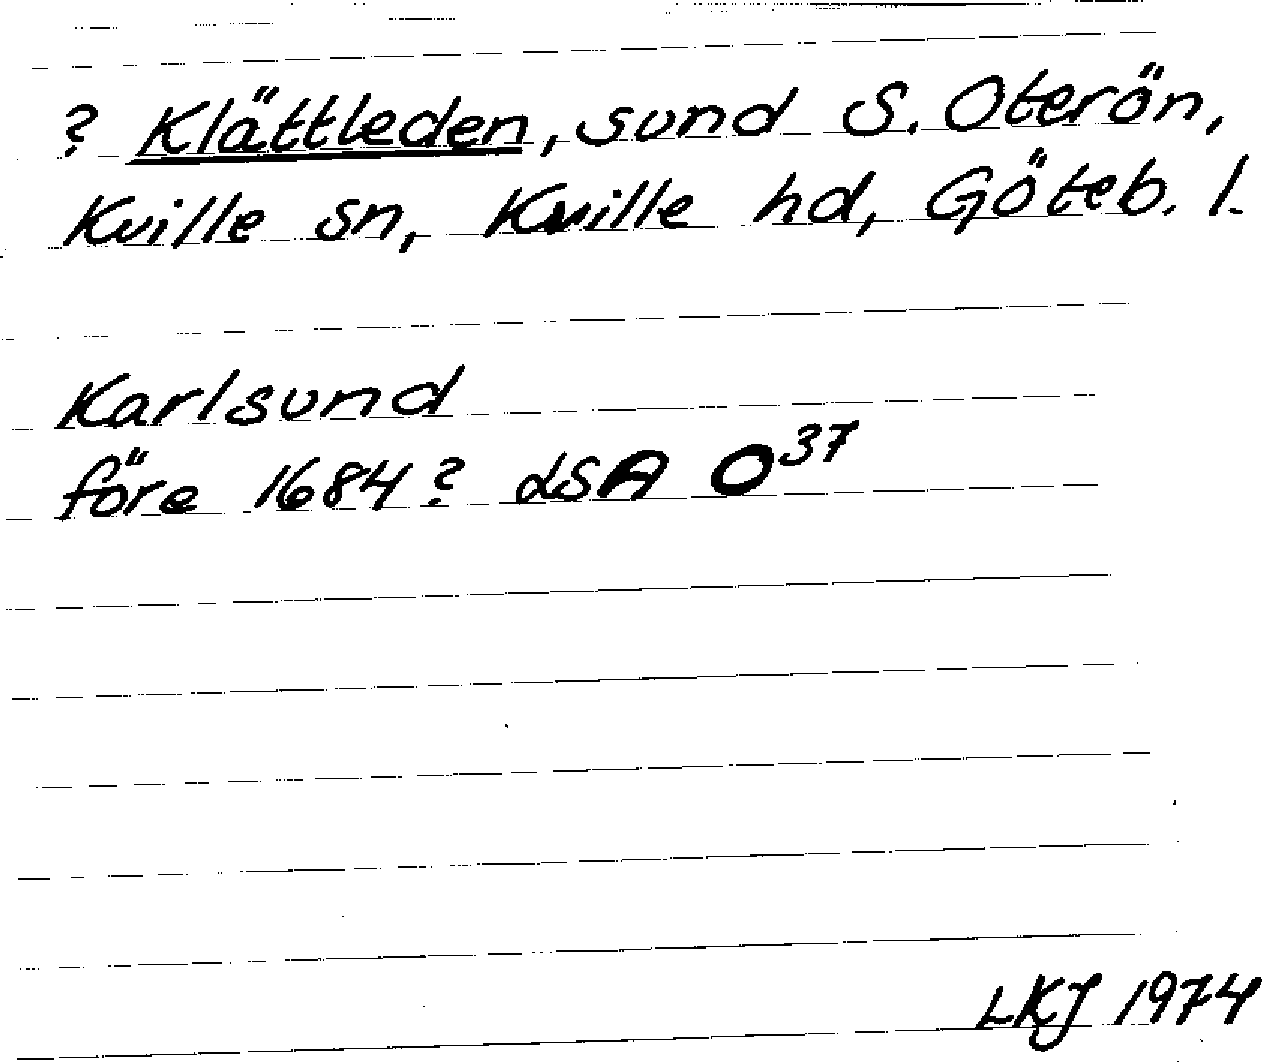 ? Klättleden, sund S. Oterön,
Kville sn, Kville hd, Göteb. l.
Karlsund
före 1684? LSA O37
LKJ 1974